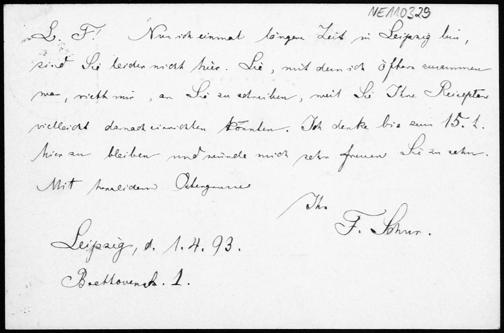 NEM0329
L. F! Nun ich einmal längere Zeit in Leipzig bin,
sind Sie leider nicht hier. Lie, mit dem ich öfters zusammen
war, rieth mir, an Sie zu schreiben, weil Sie Ihre
vielleicht danach einrichten könnten. Ich denke bis zum 15.
hier zu bleiben und würde mich sehr freuen Sie zu sehn.
Mit herzlichem Ostergruss
Ihr
F. Schur.
Leipzig, d. 1.4.93.
Beethovenstr. 1.